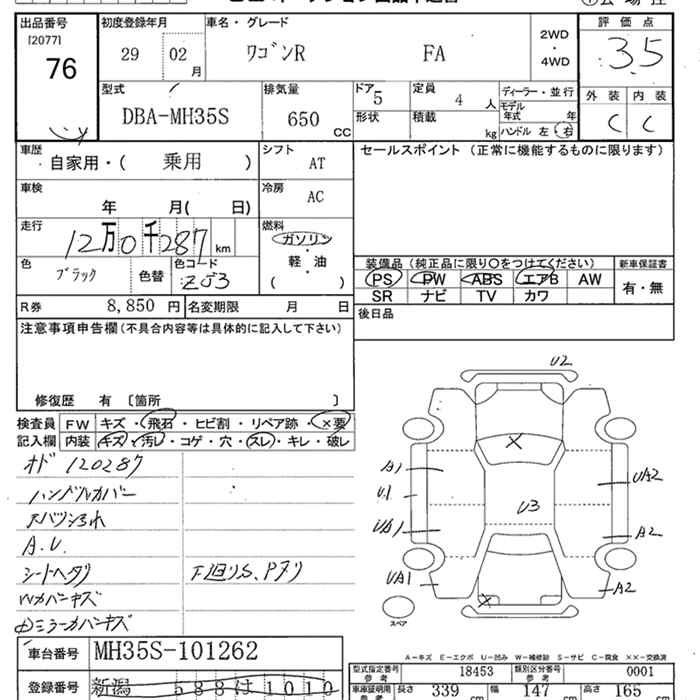 出品番号 初度登録年月 車名・グレード 評価点
[2077] 76 29 02月 ワゴンR FA 2WD・4WD 3.5
外装 内装
C C
型式 排気量 ドア 5 定員 4人 ディーラー・並行
DBA-MH35S 650CC 形状 積載 kg モデル年式 年
ハンドル 左・右
車歴 シフト セールスポイント(正常に機能するものに限ります)
自家用・( 乗用 ) AT
車検 冷房
年 月( 日) AC
走行 燃料
12万0千287km ガソリン・軽・油
( )
色 ブラック 色替 色コード Z03
装備品(純正品に限り○をつけてください) 新車保証書
PS PW ABS エアB AW 有・無
SR ナビ TV カワ
R券 8,850円 名変期限 月 日 後日品
注意事項申告欄(不具合内容等は具体的に記入して下さい)
修復歴 有 〔箇所 〕
検査員記入欄 FW キズ・飛石・ヒビ割・リペア跡・×要
内装 キズ・汚レ・コゲ・穴・スレ・キレ・破レ
オド 120287
ハンドルカバー
A.U.
シートヘタリ 下回りS.Pナリ
Wカバーキズ
ミラーカバーキズ
U2
A1
U1
UA1
UA1
U3
UA2
A2
A2
スペア
A-キズ E-エクボ U-凹み W-補修跡 S-サビ C-腐食 ××-交換済
車台番号 MH35S-101262
登録番号 新潟 588は1010
型式指定番号 参考 18453 類別区分番号 参考 0001
車庫証明用 参考 長さ 339cm 幅 147cm 高さ 165cm